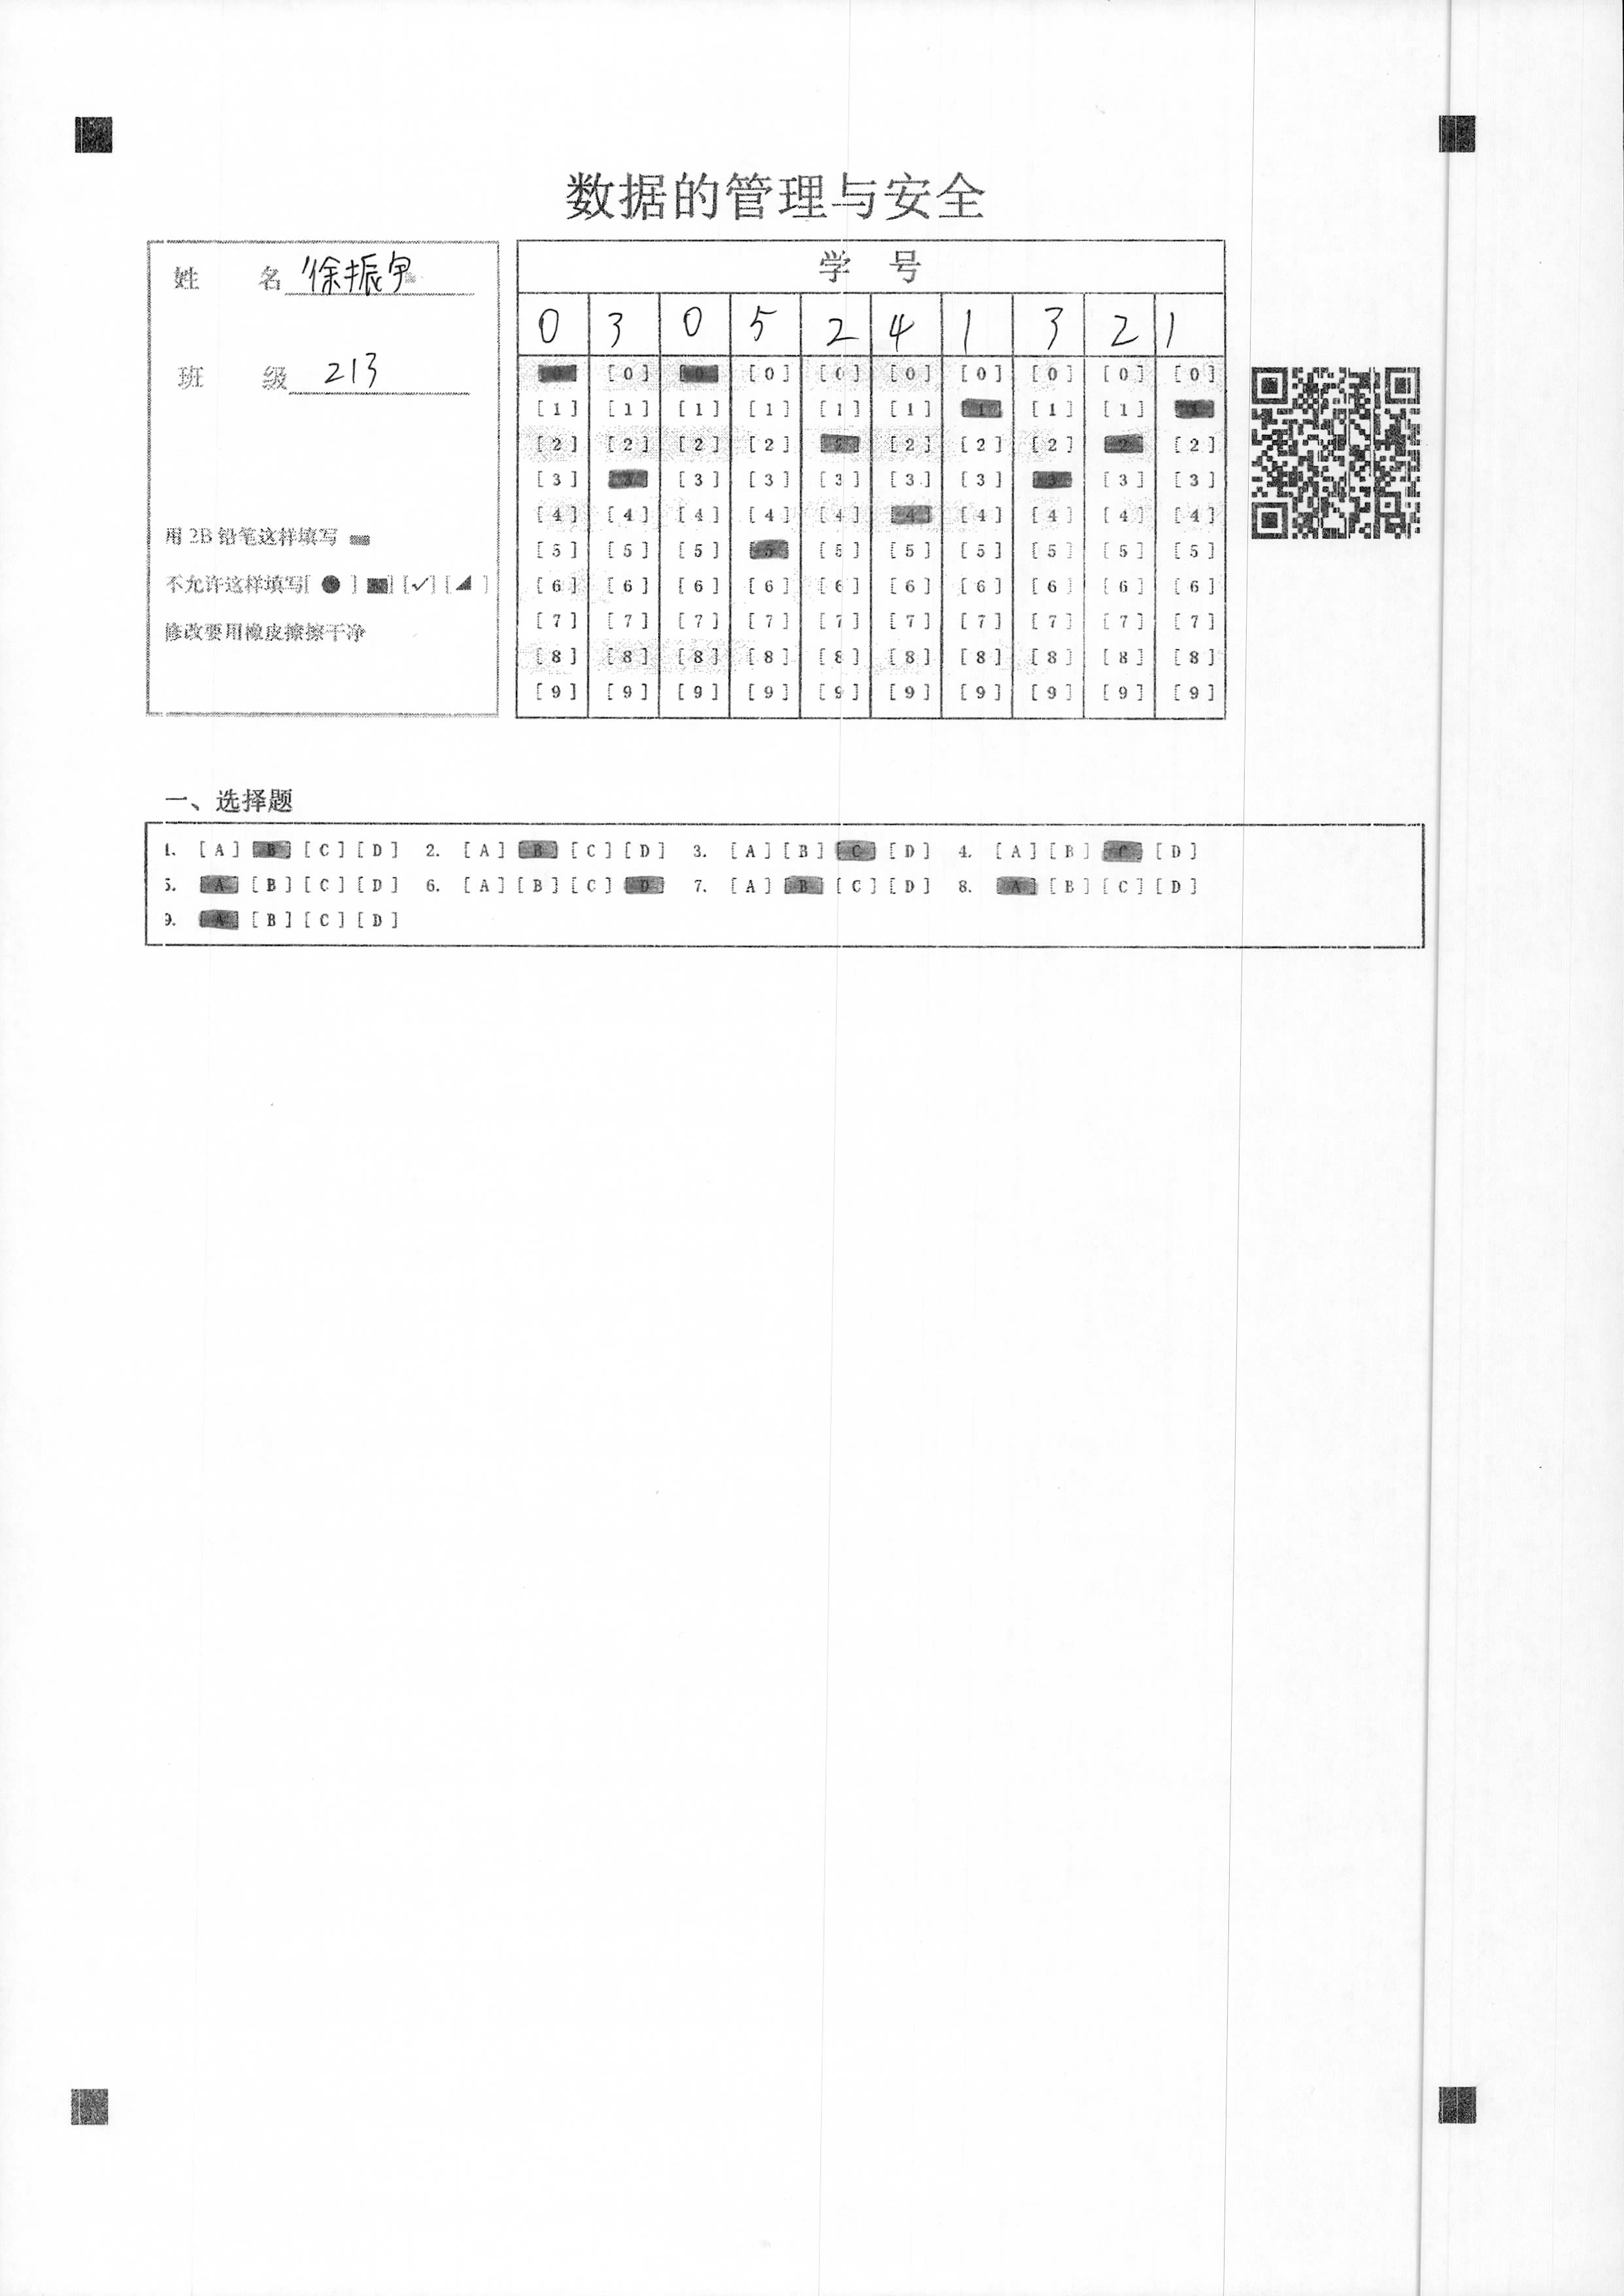 数据的管理与安全
姓 名 徐振宇
班 级 213
用 2B 铅笔这样填写
不允许这样填写[ ● ] [■] [✓] [◢ ]
修改要用橡皮擦擦干净
学 号
0 3 0 5 2 4 1 3 2 1
[0] [0] [0] [0] [0] [0] [0] [0] [0] [0]
[1] [1] [1] [1] [1] [1] [1] [1] [1] [1]
[2] [2] [2] [2] [2] [2] [2] [2] [2] [2]
[3] [3] [3] [3] [3] [3] [3] [3] [3] [3]
[4] [4] [4] [4] [4] [4] [4] [4] [4] [4]
[5] [5] [5] [5] [5] [5] [5] [5] [5] [5]
[6] [6] [6] [6] [6] [6] [6] [6] [6] [6]
[7] [7] [7] [7] [7] [7] [7] [7] [7] [7]
[8] [8] [8] [8] [8] [8] [8] [8] [8] [8]
[9] [9] [9] [9] [9] [9] [9] [9] [9] [9]
一、选择题
1. [A] [B] [C] [D] 2. [A] [B] [C] [D] 3. [A] [B] [C] [D] 4. [A] [B] [C] [D]
5. [A] [B] [C] [D] 6. [A] [B] [C] [D] 7. [A] [B] [C] [D] 8. [A] [B] [C] [D]
9. [A] [B] [C] [D]